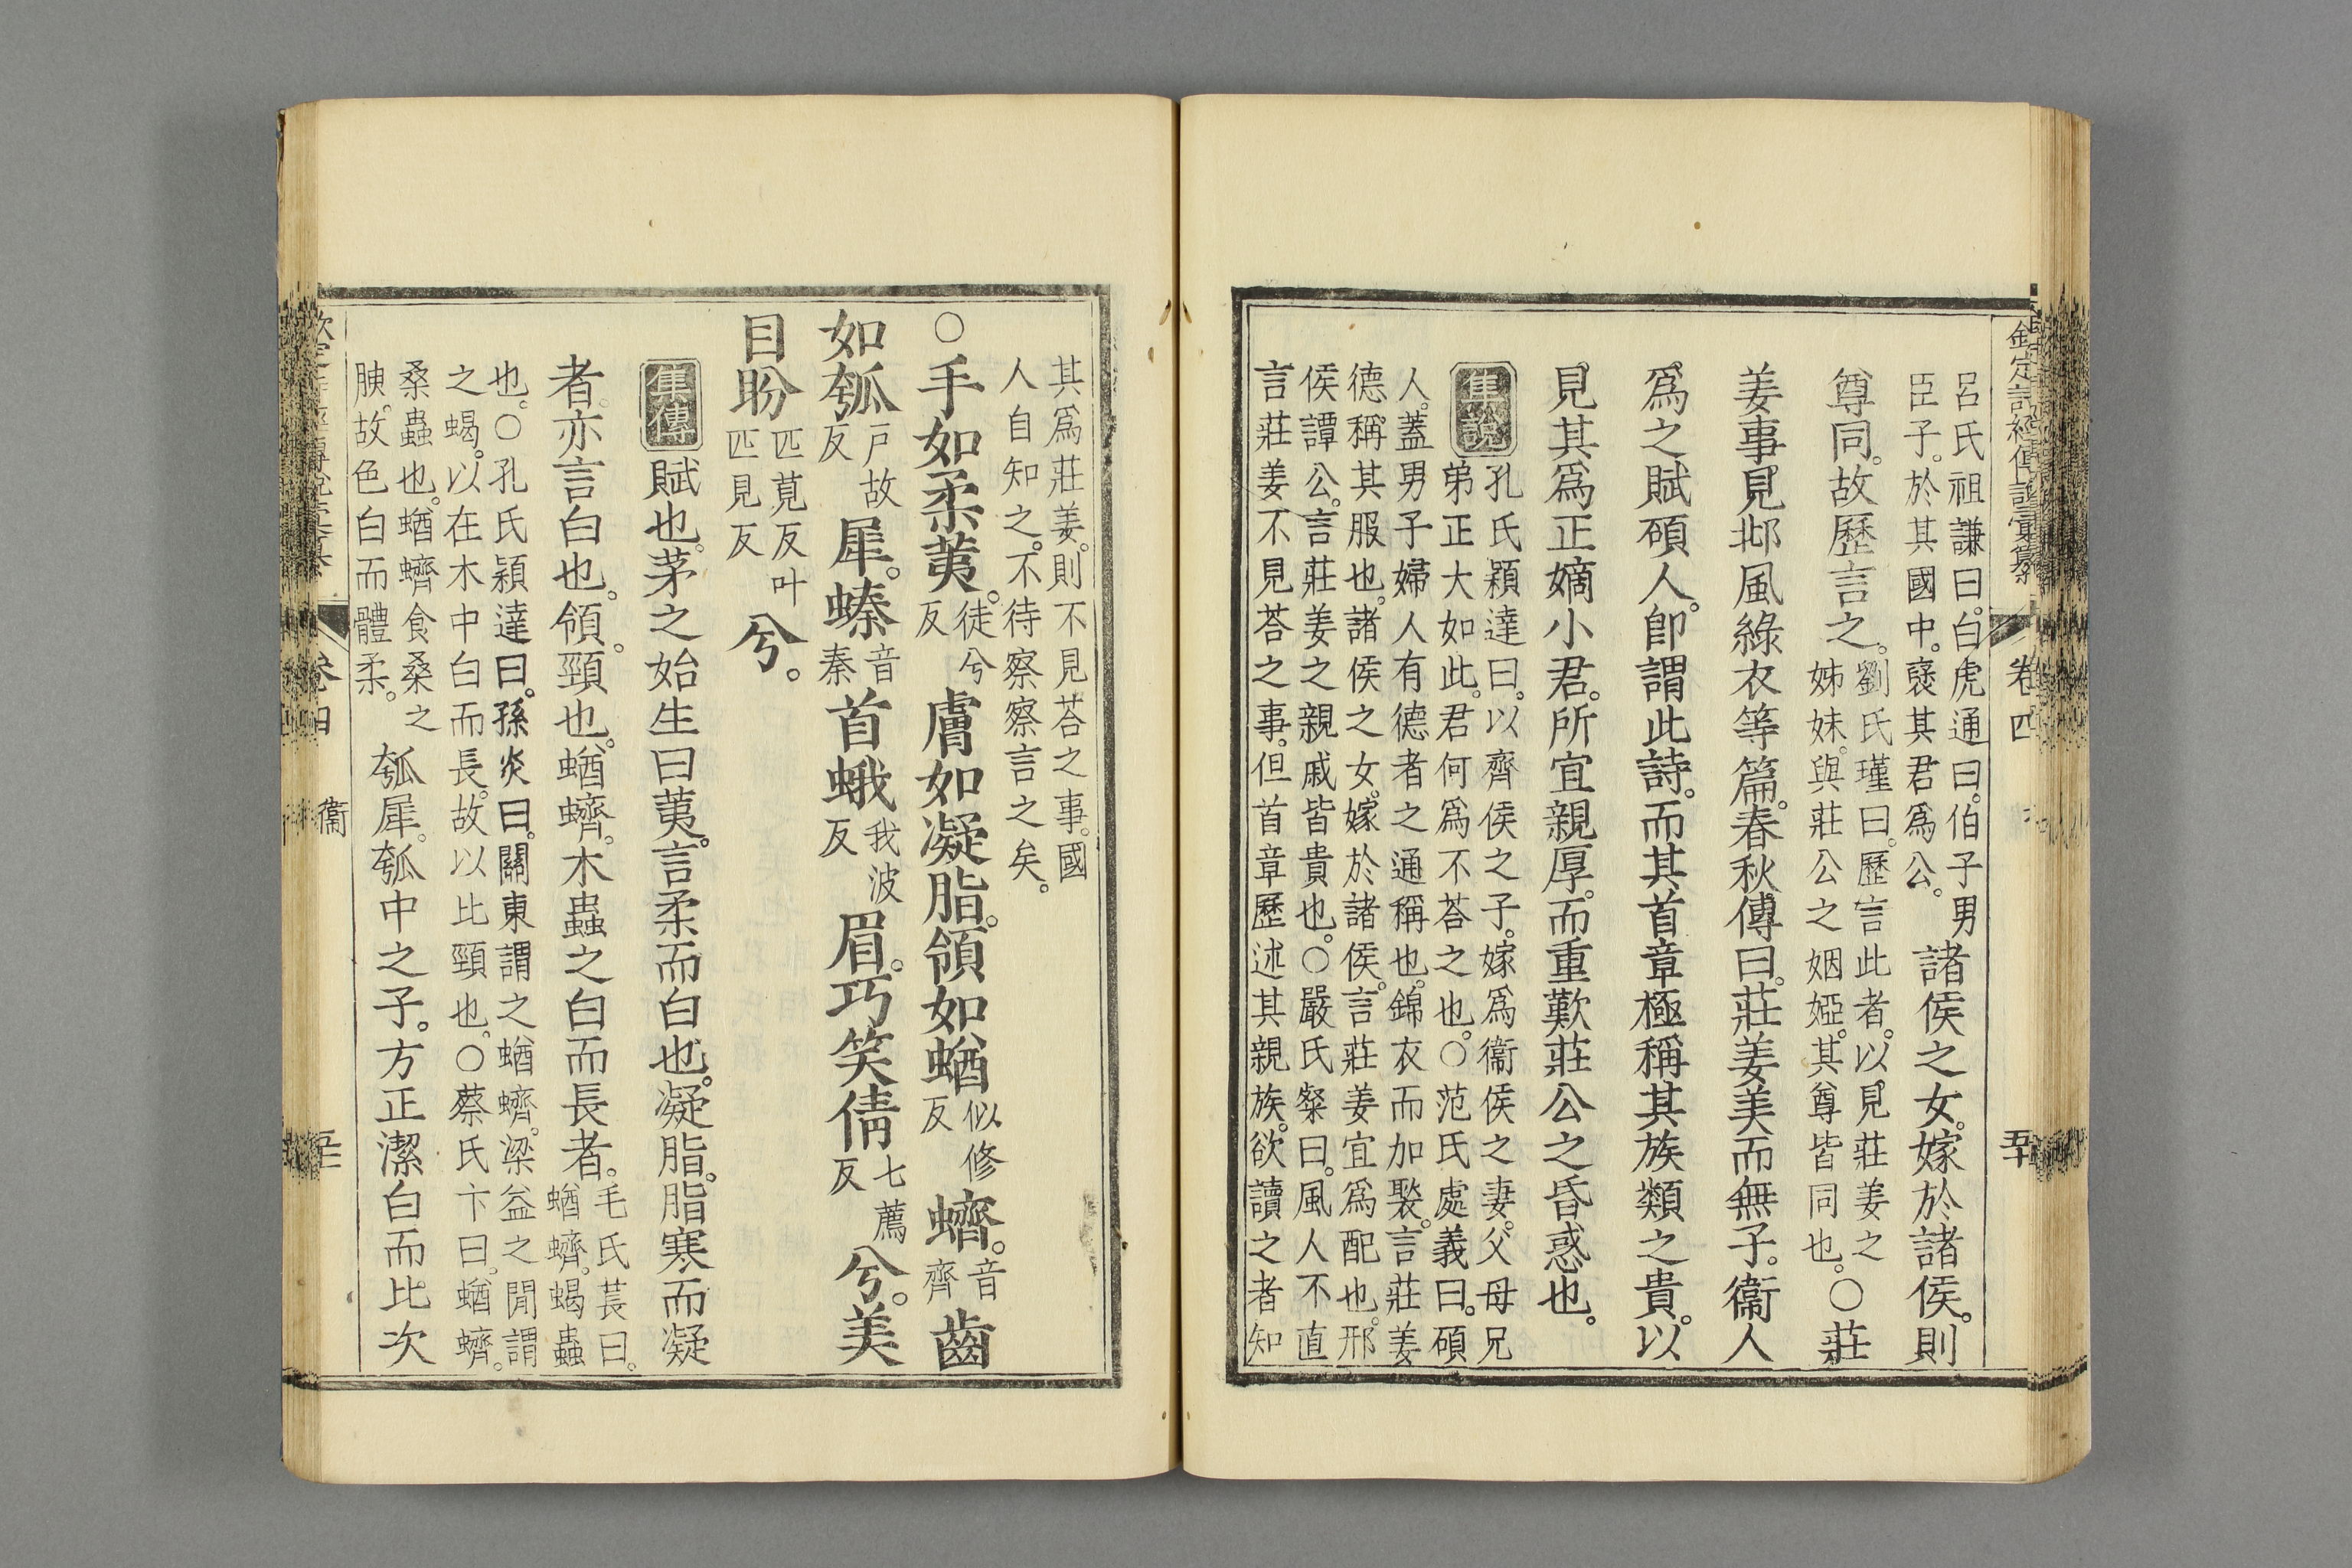 呂氏祖謙曰。白虎通曰。伯子男
臣子。於其國中。襃其君爲公。
諸侯之女。嫁於諸侯。則
尊同。故歷言之。
劉氏瑾曰。歷言此者。以見莊姜之
姊妹。與莊公之姻婭。其尊皆同也。
○莊
姜事見邶風綠衣等篇。春秋傳曰。莊姜美而無子。衞人
爲之賦碩人。卽謂此詩。而其首章極稱其族類之貴。以
見其爲正嫡小君。所宜親厚。而重歎莊公之昏惑也。
集說
孔氏穎達曰。以齊侯之子。嫁爲衞侯之妻。父母兄
弟正大如此。君何爲不荅之也。○范氏處義曰。碩
人。蓋男子婦人有德者之通稱也。錦衣而加褧。言莊姜
德稱其服也。諸侯之女。嫁於諸侯。言莊姜宜爲配也。邢
侯譚公。言莊姜之親戚皆貴也。○嚴氏粲曰。風人不直
言莊姜不見荅之事。但首章歷述其親族。欲讀之者知
欽定詩經傳說彙纂
卷四
其爲莊姜。則不見荅之事。國
人自知之。不待察察言之矣。
○手如柔荑。
徒兮
反
膚如凝脂。領如蝤
似修
反
蠐。
音
齊
齒
如瓠
戸故
反
犀。螓
音
秦
首蛾
我波
反
眉。巧笑倩
七薦
反
兮。美
目盼
匹莧反叶
匹見反
兮。
集傳
賦也。茅之始生曰荑。言柔而白也。凝脂。脂寒而凝
者。亦言白也。領。頸也。蝤蠐。木蟲之白而長者。
毛氏萇曰。
蝤蠐。蝎蟲
也。○孔氏穎達曰。孫炎曰。關東謂之蝤蠐。梁益之閒謂
之蝎。以在木中白而長。故以比頸也。○蔡氏卞曰。蝤蠐。
桑蟲也。蝤蠐食桑之
腴。故色白而體柔。
瓠犀。瓠中之子。方正潔白而比次
卷四
衞